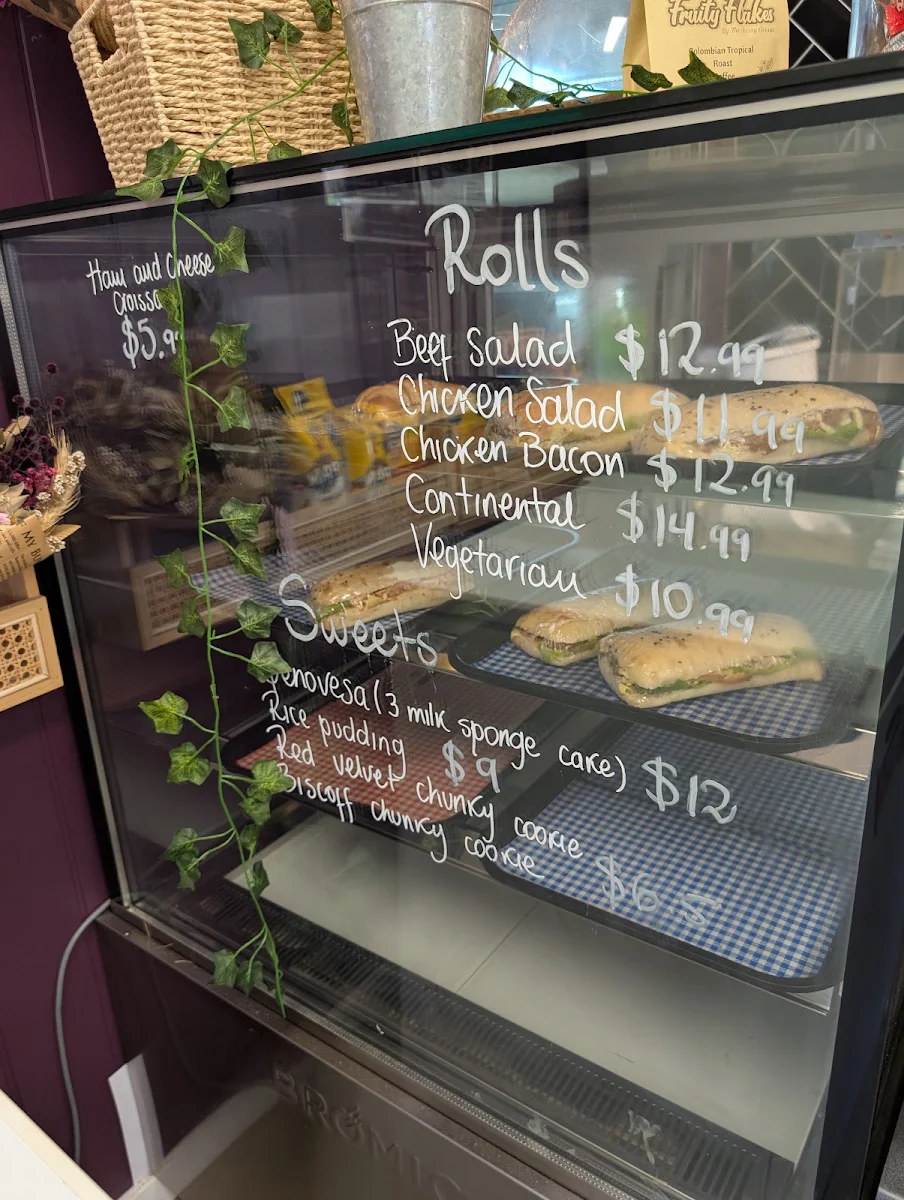 Fruity Flakes
Colombian Tropical
Roast
Ham and Cheese
$5.9
Rolls
Beef Salad $12.99
Chicken Salad $11.99
Chicken Bacon $12.99
Continental $14.99
Vegetarian $10.99
Sweets
Genovesa (3 milk sponge cake) $12
Rice pudding $9
Red velvet chunky cookie
Biscoff chunky cookie $6.5
MY
BROMIC